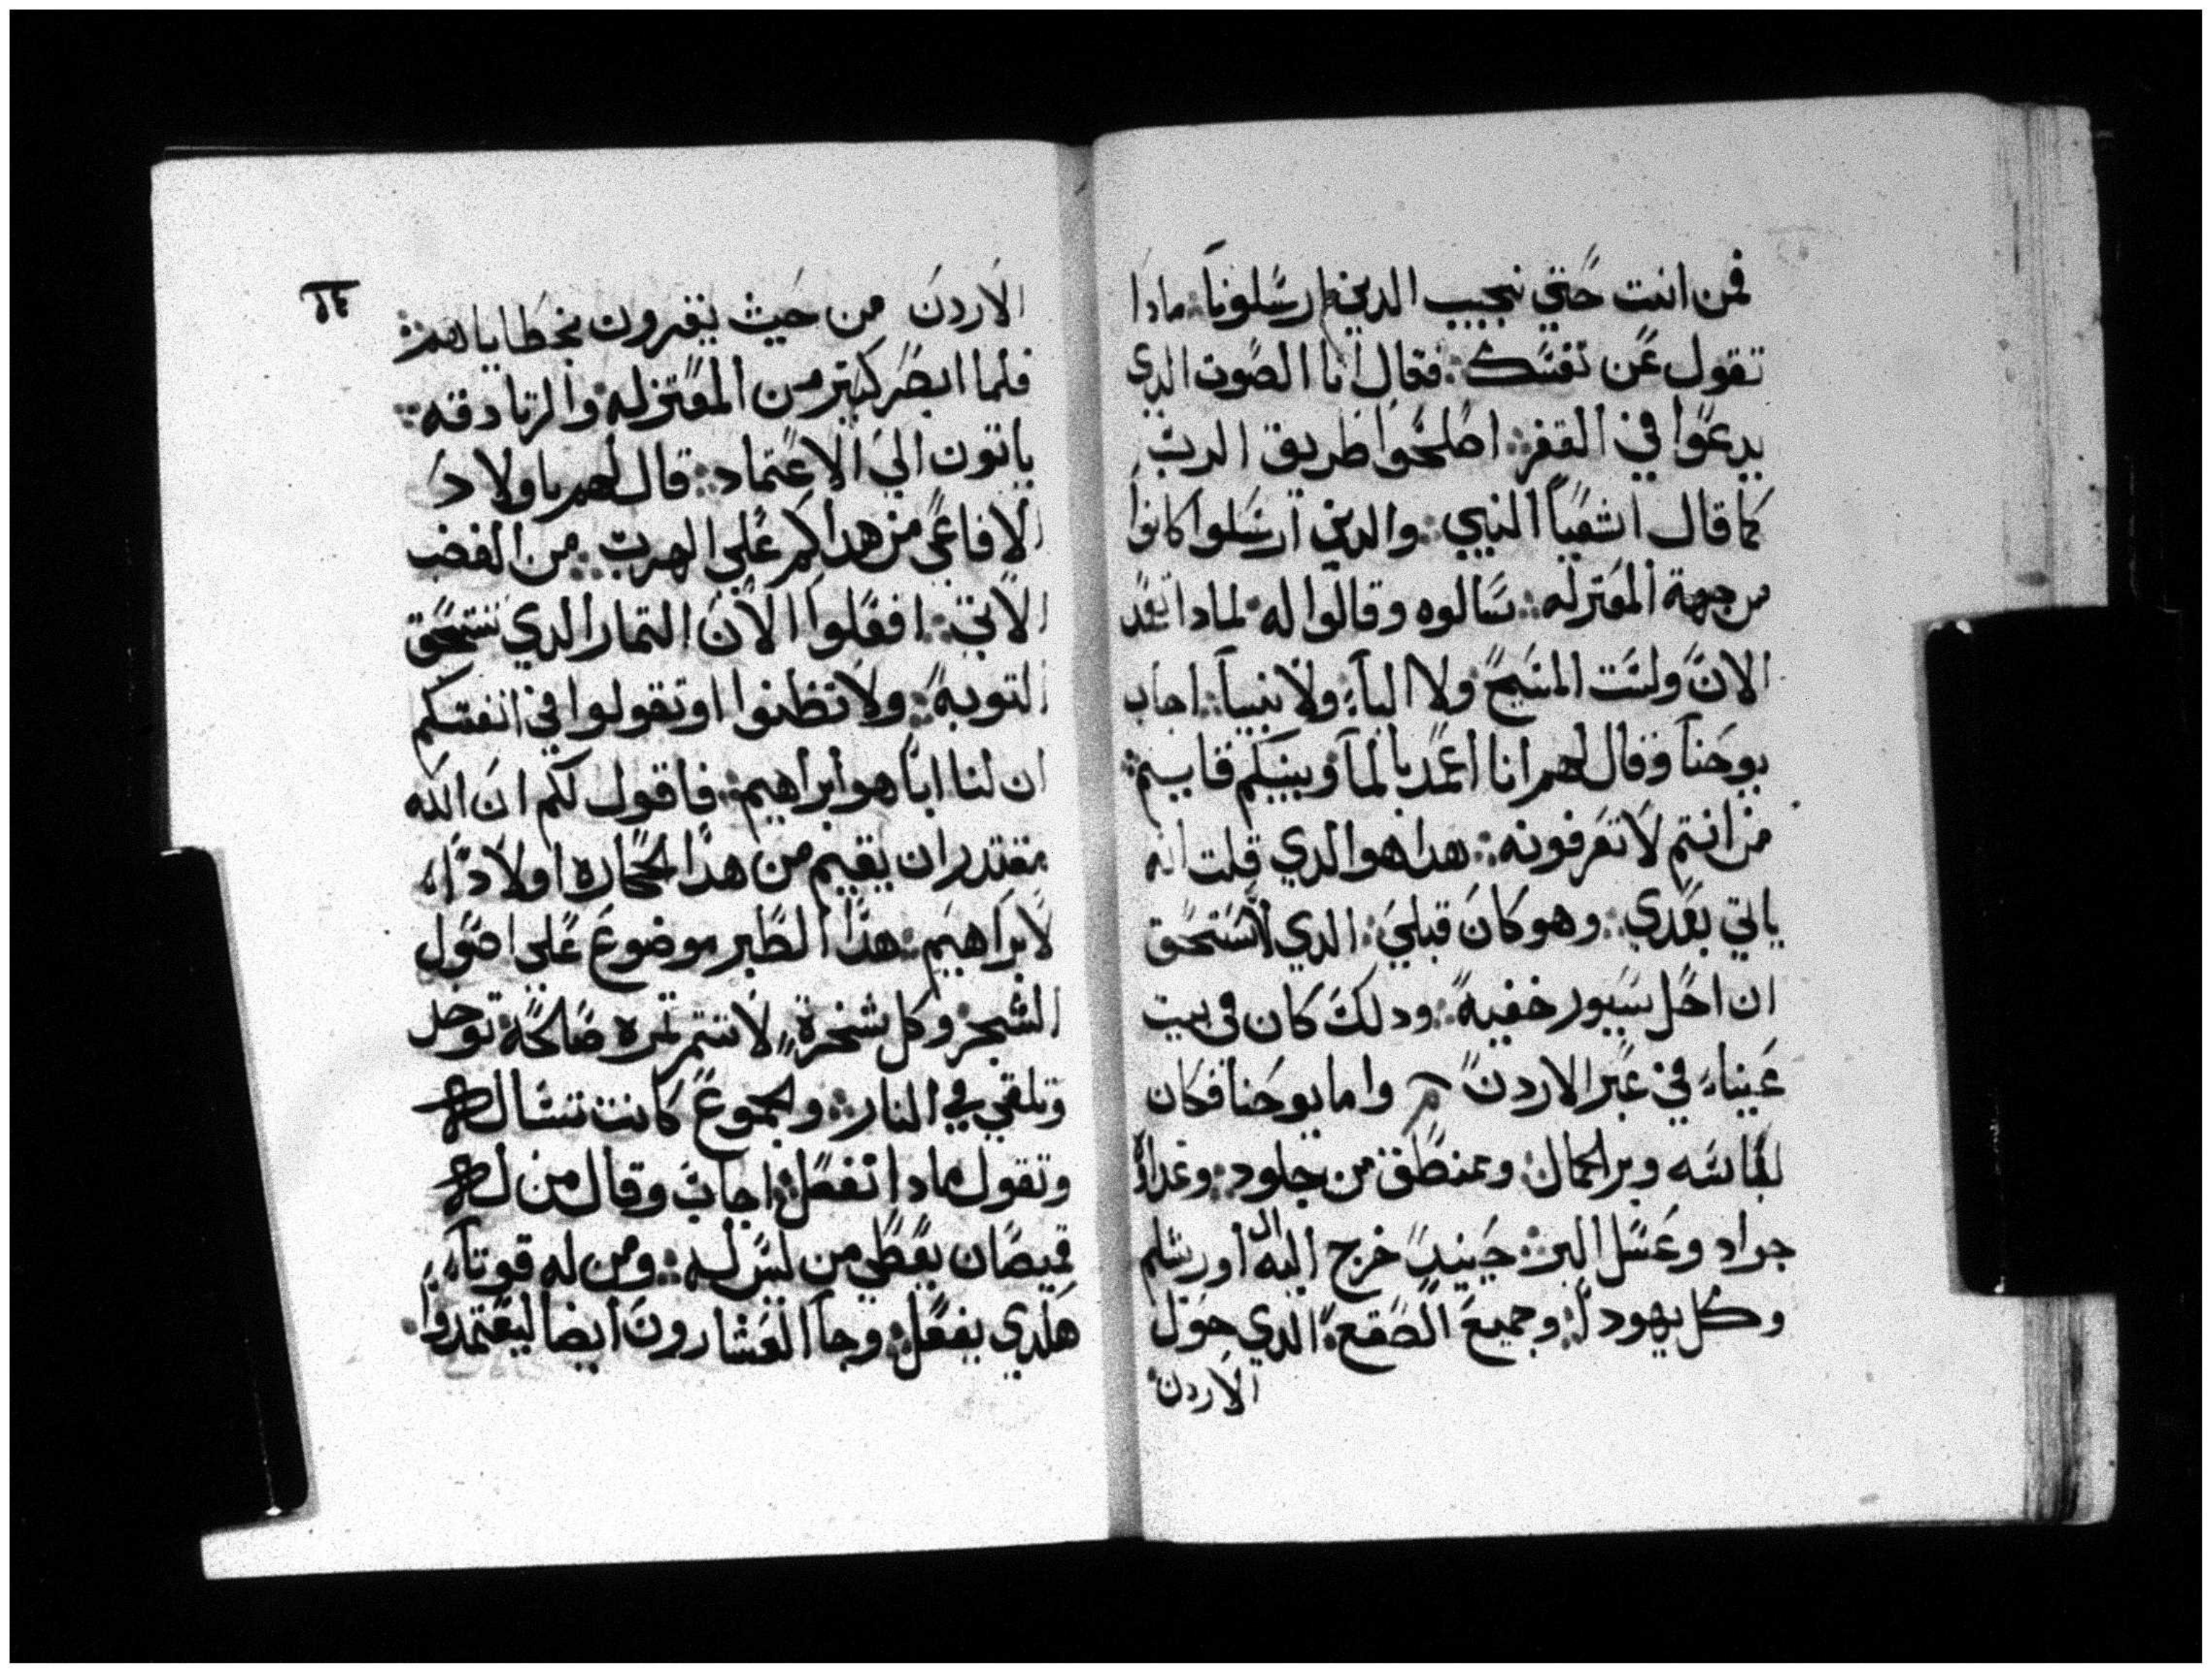 فمن انت حتي نجيب الدين ارسلونا: مادا
تقول عن نفسك: فقال انا الصوت الدي
يدعوا في القفر: اصلحوا طريق الرب
كما قال اشعيا النبي: والدين ارسلوا كانوا
من جهة المعتزله: سالوه وقالوا له لمادا تعمد
الان ولست المسيح ولا اليا: ولا نبيا: اجاب
يوحنا وقال لهم انا اعمد بالما وبينكم قايم:
من انتم لا تعرفونه: هدا هو الدي قلت انه
ياتي بعدي: وهو كان قبلي: الدي لا نستحق
ان احل سيور خفيه: ودلك كان في بيت
عيناء في عبر الاردن واما يوحنا فكان
لباسه وبر الجمال: ومنطقة من جلود: وغداه
جراد وعسل البر: حينيد خرج اليه ال اورشلم
وكل يهودا: وجميع الصقع: الدي حول
الاردن
الاردن من حيث يقرون بخطاياهم:
فلما ابصر كتير من المعتزله والزنادقه:
ياتون الي الاعتماد: قال لهم ياولاد
الافاعي من هداكم علي الهرب: من الغضب
الاتي: افعلوا الان التمار الدي تستحق
التوبة: ولا تظنوا او تقولوا في انفسكم
ان لنا ابا هو ابراهيم: فاقول لكم ان الله
مقتدر ان يقيم من هدا الحجاره اولادا
لابراهيم: هدا الطبر موضوع علي اصول
الشجر: وكل شجرة لا تتمر تمره صالحة توخد
وتلقي في النار: والجموع كانت تساله
وتقول مادا نفعل: اجاب وقال من له
قميصان يعطي من ليس له: ومن له قوتا
هكدي يفعل: وجا العشارون ايضا ليعتمدوا.